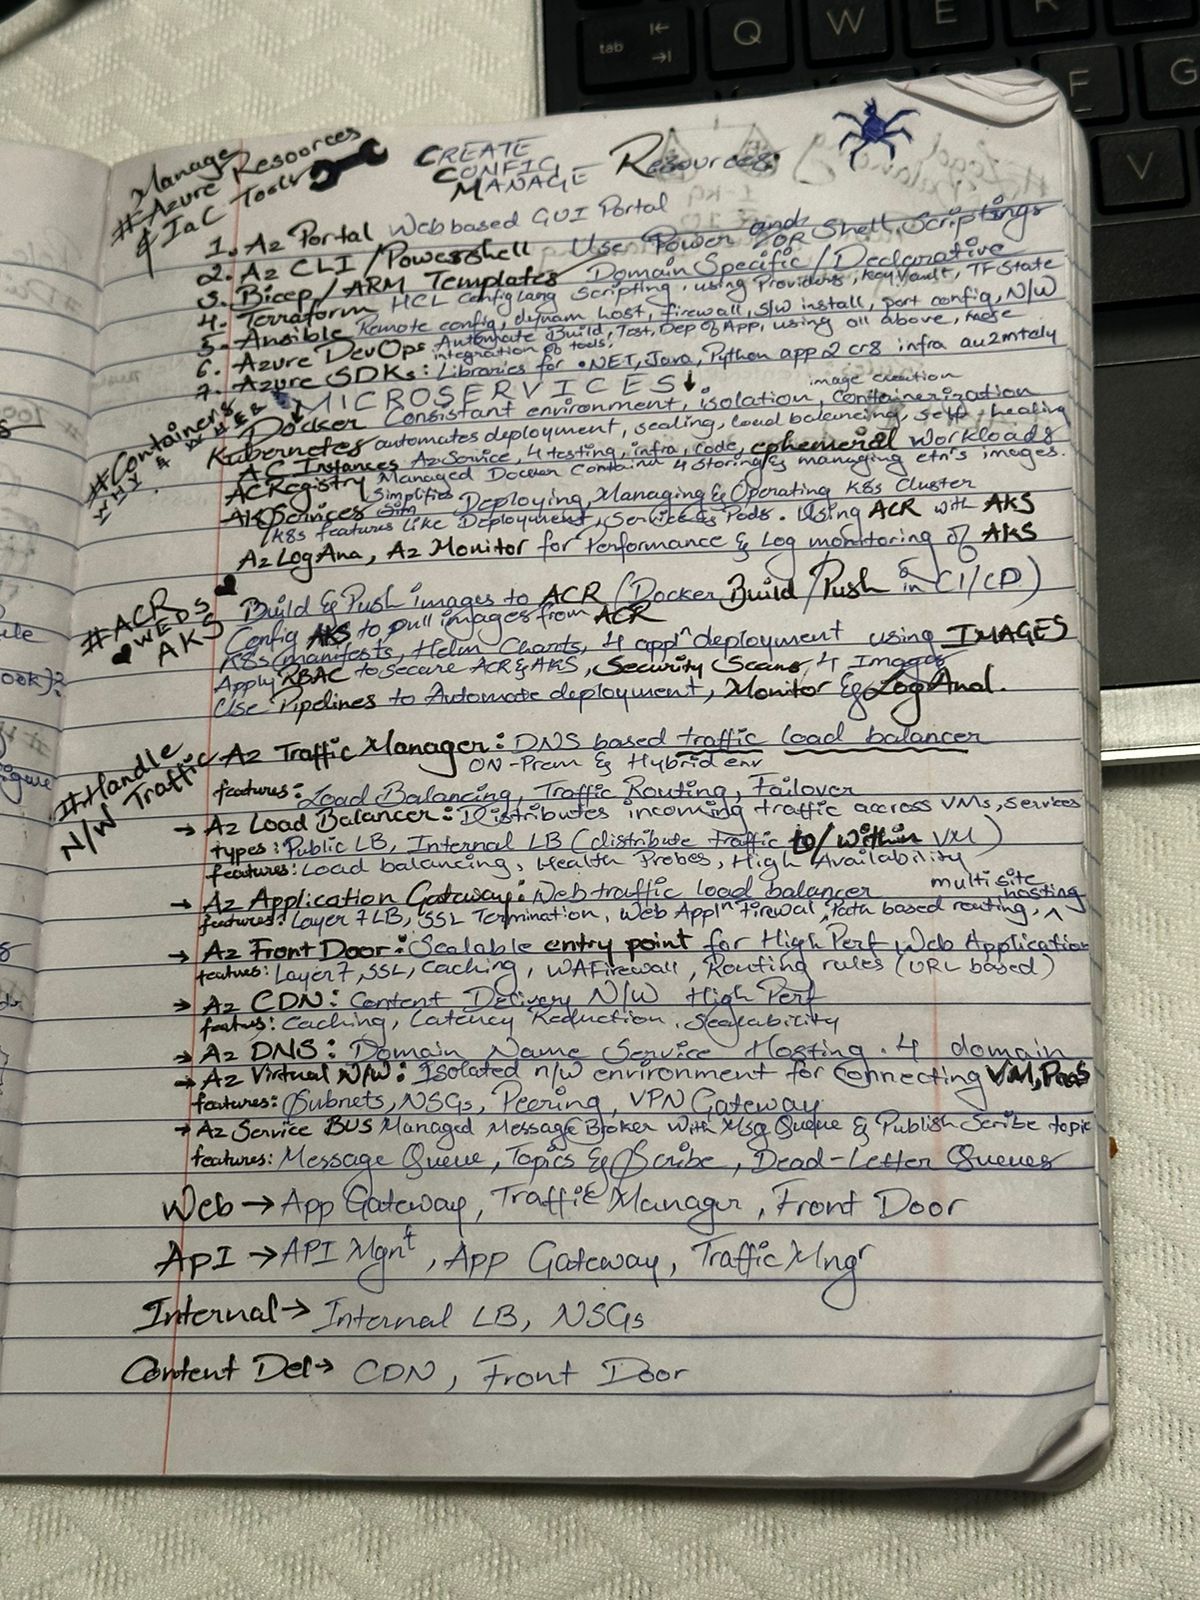 Manage
# Azure Resources
& IaC Tools
CREATE
CONFIG
MANAGE Resources:
1. Az Portal Web based GUI Portal
2. Az CLI / Powershell Use Power and/OR Shell Scriptings
3. Bicep / ARM Templates Domain Specific / Declarative
4. Terraform HCL Config lang Scripting, using Providers, KeyVault, TF State
5. Ansible Remote config, dynam host, firewall, s/w install, port config, N/W
6. Azure DevOps Automate Build, Test, Dep of App, using all above, more
integration of tools.
7. Azure SDKs: Libraries for .NET, Java, Python app 2 cr8 infra au2mtely
MICROSERVICES ↓
# Containers
WHY & WHEN
image creation
Docker Consistant environment, isolation, containerization
Kubernetes automates deployment, scaling, load balancing, self-healing
AC Instances Az Service, 4 testing, infra, code, ephemeral workloads
ACRegistry Managed Docker Container 4 storing & managing ctn's images.
AKServices Simplifies Deploying, Managing & Operating K8s Cluster
with K8s features like Deployment, Services Pods. Using ACR with AKS
Az Log Ana, Az Monitor for Performance & Log monitoring of AKS
# ACR
♥ WEDS ♥
AKS
Build & Push images to ACR (Docker Build / Push in CI/CD)
Config AKS to pull images from ACR
K8s manifests, Helm Charts, 4 appln deployment using IMAGES
Apply RBAC to secure ACR & AKS, Security Scans 4 Images
Use Pipelines to Automate deployment, Monitor & Log Anal.
# Handle
N/W Traffic
Az Traffic Manager: DNS based traffic load balancer
ON-Prem & Hybrid env
features: Load Balancing, Traffic Routing, Failover
→ Az Load Balancer: Distributes incoming traffic accross VMs, services
types: Public LB, Internal LB (distribute traffic to/within VM)
features: Load balancing, Health Probes, High Availability
→ Az Application Gateway: Web traffic load balancer
features: Layer 7 LB, SSL Termination, Web Appln Firewal, Path based routing, ^ multi site hosting
→ Az Front Door: Scalable entry point for High Perf Web Application
features: Layer 7, SSL, Caching, WAFirewall, Routing rules (URL based)
→ Az CDN: Content Delivery N/W High Perf
featurs: Caching, Latency Reduction, Scalability
→ Az DNS: Domain Name Service Hosting. 4 domain
→ Az Virtual N/W: Isolated n/w environment for Connecting VM, PaaS
features: Subnets, NSGs, Peering, VPN Gateway
→ Az Service BUS Managed Message Broker with Msg Queue & Publish Scribe topic
features: Message Queue, Topics & Scribe, Dead-Letter Queues
Web → App Gateway, Traffic Manager, Front Door
ApI → API Mgnt, App Gateway, Traffic Mngr
Internal → Internal LB, NSGs
Content Del → CDN, Front Door
tab
Q
W
E
R
F
G
V